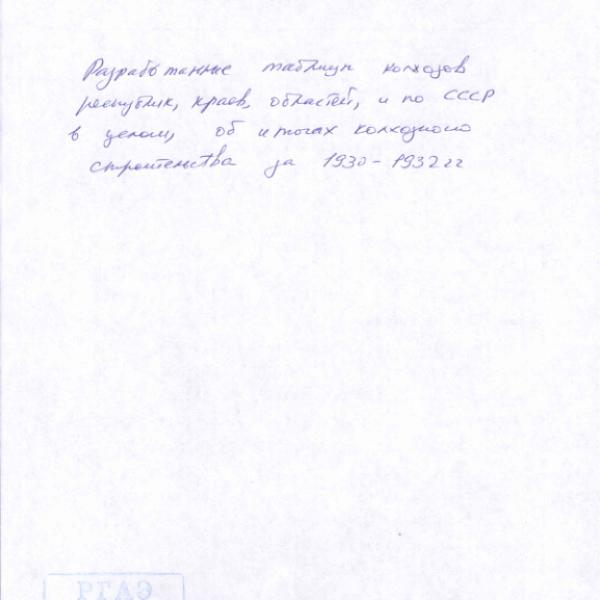 Разработанные таблицы колхозов
республик, краев, областей, и по СССР
в целом, об итогах колхозного
строительства за 1930-1932 гг
РГАЭ